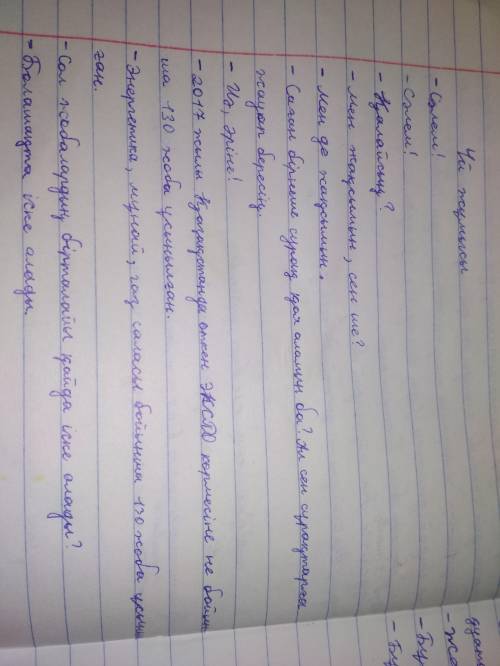 Үй жұмысы
- Сәлем!
- Сәлем!
- Қалайсың?
- Мен жақсымын, сен ше?
- Мен де жақсымын.
- Саған бірнеше сұрақ қоя аламын ба? Ал сен сұрақтарға
жауап бересің.
- Иә, әрине!
- 2017 жылы Қазақстанда өткен ЭКСПО көрмесіне не бойын
ша 130 жоба ұсынылған.
- Энергетика, мұнай, газ саласы бойынша 130 жоба ұсыныл
ған.
- Сол жобалардың бірталайы қайда іске алады?
- Болашақта іске алады.
дуат
- Же
- Бұ
- Бұ